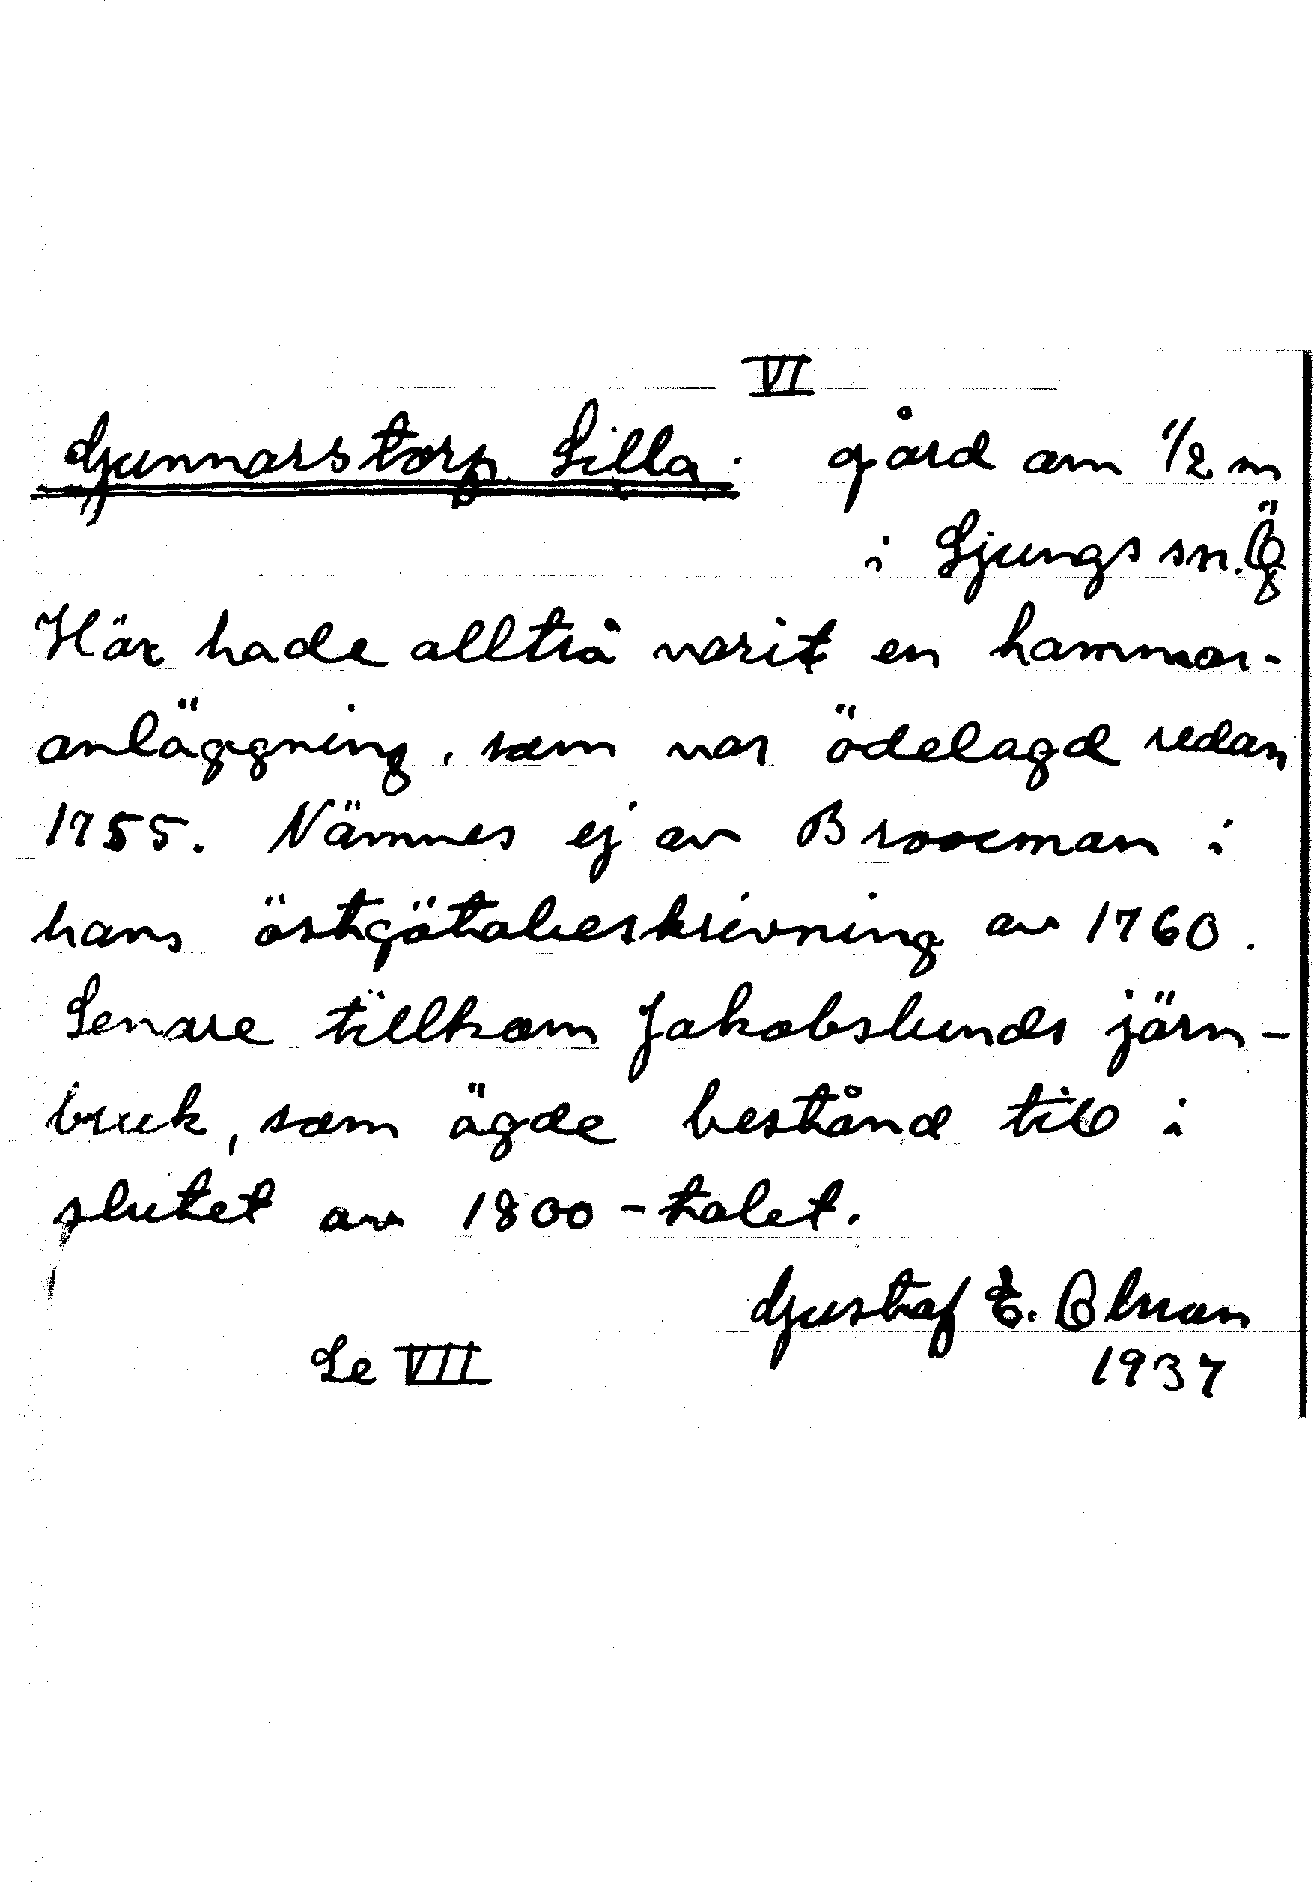 VI
Gunnarstorp Lilla. gård om 1/2 m
i Ljungs sn. Ög
Här hade alltså varit en hammar-
anläggning, som var ödelagd redan
1755. Nämnes ej av Broocman i
hans östgötabeskrivning av 1760.
Senare tillkom Jakobslunds järn-
bruk, som ägde bestånd till i
slutet av 1800-talet.
Gustaf E.
Se VII 1937